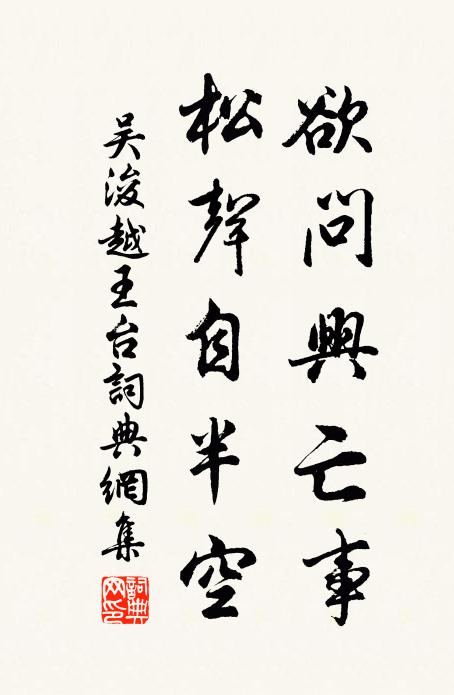 欲問興亡事
松聲自半空
吴浚越王台詞典網集
詞典网印